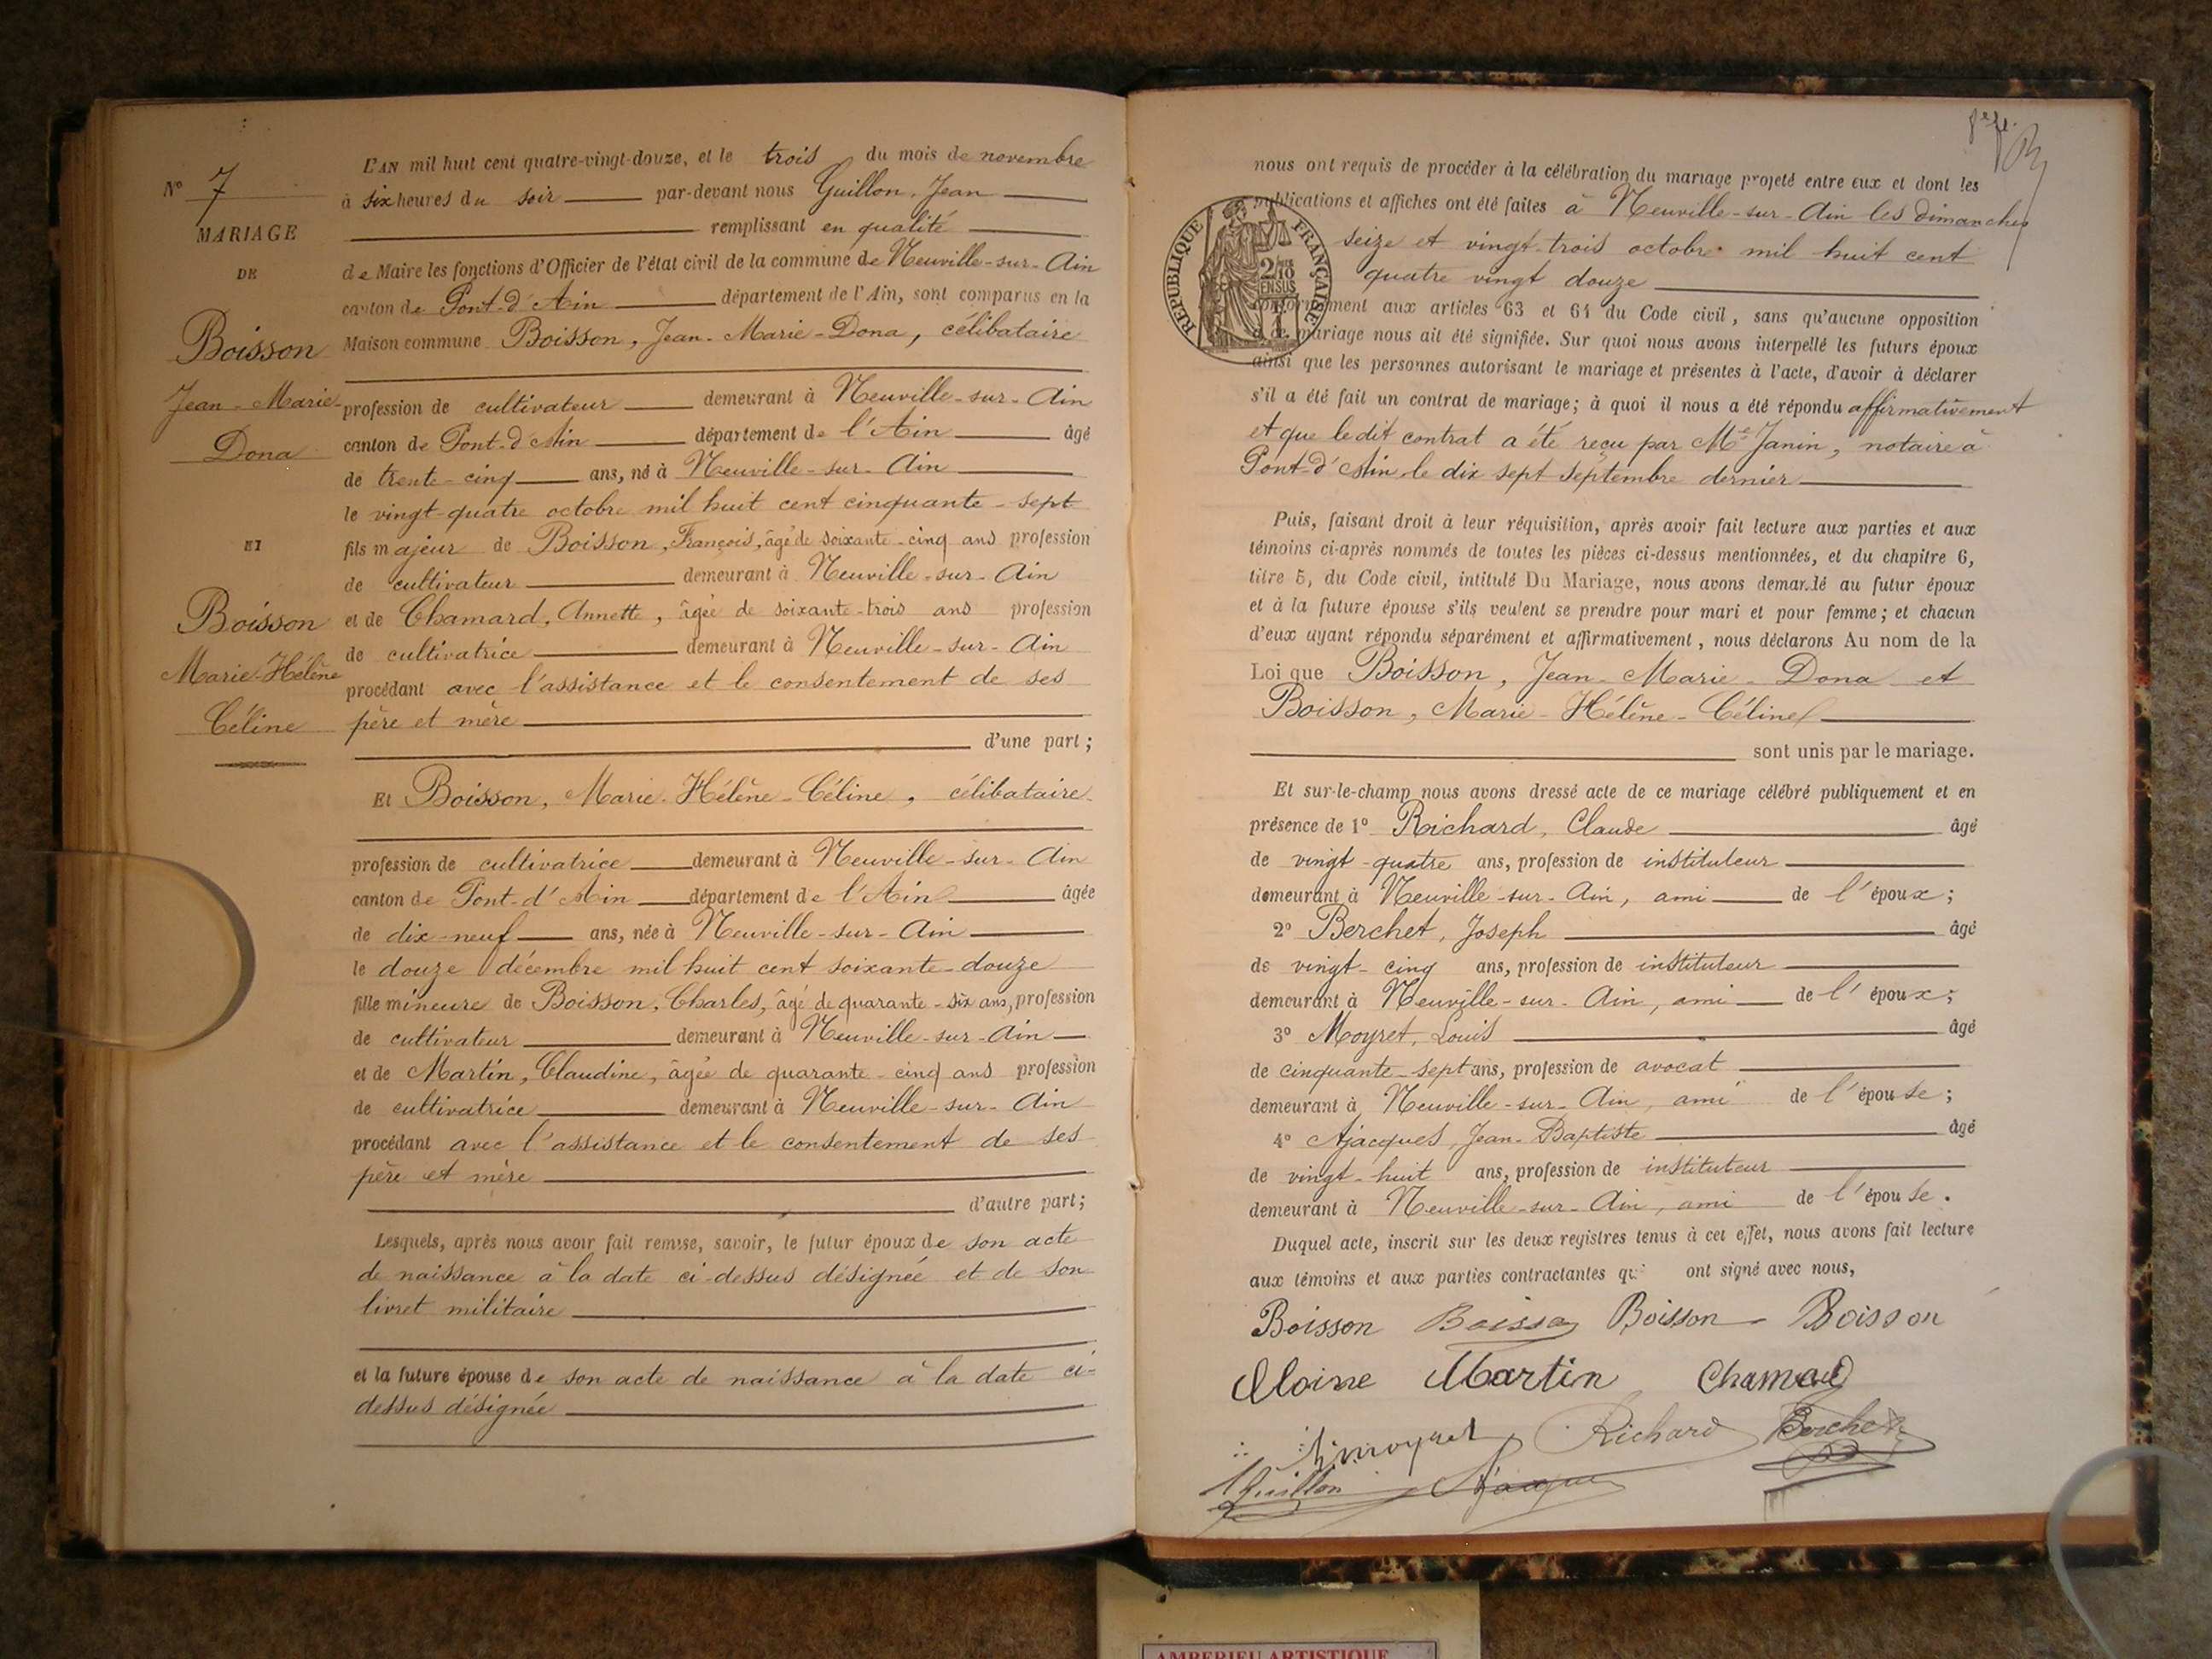 N° 7
MARIAGE
DE
Boisson
Jean-Marie-
Dona
ET
Boisson
Marie-Hélène
Céline
L'AN mil huit cent quatre-vingt-douze, et le trois du mois de novembre
à six heures du soir par-devant nous Guillon, Jean
remplissant en qualité
de Maire les fonctions d'Officier de l'état civil de la commune de Neuville-sur-Ain
canton de Pont-d'Ain département de l'Ain, sont comparus en la
Maison commune Boisson, Jean-Marie-Dona, célibataire
profession de cultivateur demeurant à Neuville-sur-Ain
canton de Pont-d'Ain département de l'Ain âgé
de trente-cinq ans, né à Neuville-sur-Ain
le vingt-quatre octobre mil huit cent cinquante-sept
fils majeur de Boisson, François, âgé de soixante-cinq ans profession
de cultivateur demeurant à Neuville-sur-Ain
et de Chamard, Annette, âgée de soixante-trois ans profession
de cultivatrice demeurant à Neuville-sur-Ain
procédant avec l'assistance et le consentement de ses
père et mère
d'une part;
Et Boisson, Marie-Hélène-Céline, célibataire
profession de cultivatrice demeurant à Neuville-sur-Ain
canton de Pont-d'Ain département de l'Ain âgée
de dix-neuf ans, née à Neuville-sur-Ain
le douze décembre mil huit cent soixante-douze
fille mineure de Boisson, Charles, âgé de quarante-six ans, profession
de cultivateur demeurant à Neuville-sur-Ain
et de Martin, Claudine, âgée de quarante-cinq ans profession
de cultivatrice demeurant à Neuville-sur-Ain
procédant avec l'assistance et le consentement de ses
père et mère
d'autre part;
Lesquels, après nous avoir fait remise, savoir, le futur époux de son acte
de naissance à la date ci-dessus désignée et de son
livret militaire
et la future épouse de son acte de naissance à la date ci-
dessus désignée
nous ont requis de procéder à la célébration du mariage projeté entre eux et dont les
publications et affiches ont été faites à Neuville-sur-Ain les dimanches
seize et vingt-trois octobre mil huit cent
quatre vingt douze
RÉPUBLIQUE FRANÇAISE
conformément aux articles 63 et 64 du Code civil, sans qu'aucune opposition
mariage nous ait été signifiée. Sur quoi nous avons interpellé les futurs époux
ainsi que les personnes autorisant le mariage et présentes à l'acte, d'avoir à déclarer
s'il a été fait un contrat de mariage; à quoi il nous a été répondu affirmativement
et que ledit contrat a été reçu par Me Janin, notaire à
Pont-d'Ain, le dix sept septembre dernier
Puis, faisant droit à leur réquisition, après avoir fait lecture aux parties et aux
témoins ci-après nommés de toutes les pièces ci-dessus mentionnées, et du chapitre 6,
titre 5, du Code civil, intitulé Du Mariage, nous avons demandé au futur époux
et à la future épouse s'ils veulent se prendre pour mari et pour femme; et chacun
d'eux ayant répondu séparément et affirmativement, nous déclarons Au nom de la
Loi que Boisson, Jean-Marie-Dona et
Boisson, Marie-Hélène-Céline
sont unis par le mariage.
Et sur-le-champ nous avons dressé acte de ce mariage célébré publiquement et en
présence de 1° Richard, Claude âgé
de vingt-quatre ans, profession de instituteur
demeurant à Neuville-sur-Ain, ami de l'époux;
2° Berchet, Joseph âgé
de vingt-cinq ans, profession de instituteur
demeurant à Neuville-sur-Ain, ami de l'époux;
3° Moyret, Louis âgé
de cinquante-sept ans, profession de avocat
demeurant à Neuville-sur-Ain, ami de l'épouse;
4° Ajacques, Jean-Baptiste âgé
de vingt-huit ans, profession de instituteur
demeurant à Neuville-sur-Ain, ami de l'épouse.
Duquel acte, inscrit sur les deux registres tenus à cet effet, nous avons fait lecture
aux témoins et aux parties contractantes qui ont signé avec nous,
Boisson Boisson Boisson Boisson
Martin
Richard Berchet
Guillon
AMBERIEU ARTISTIQUE